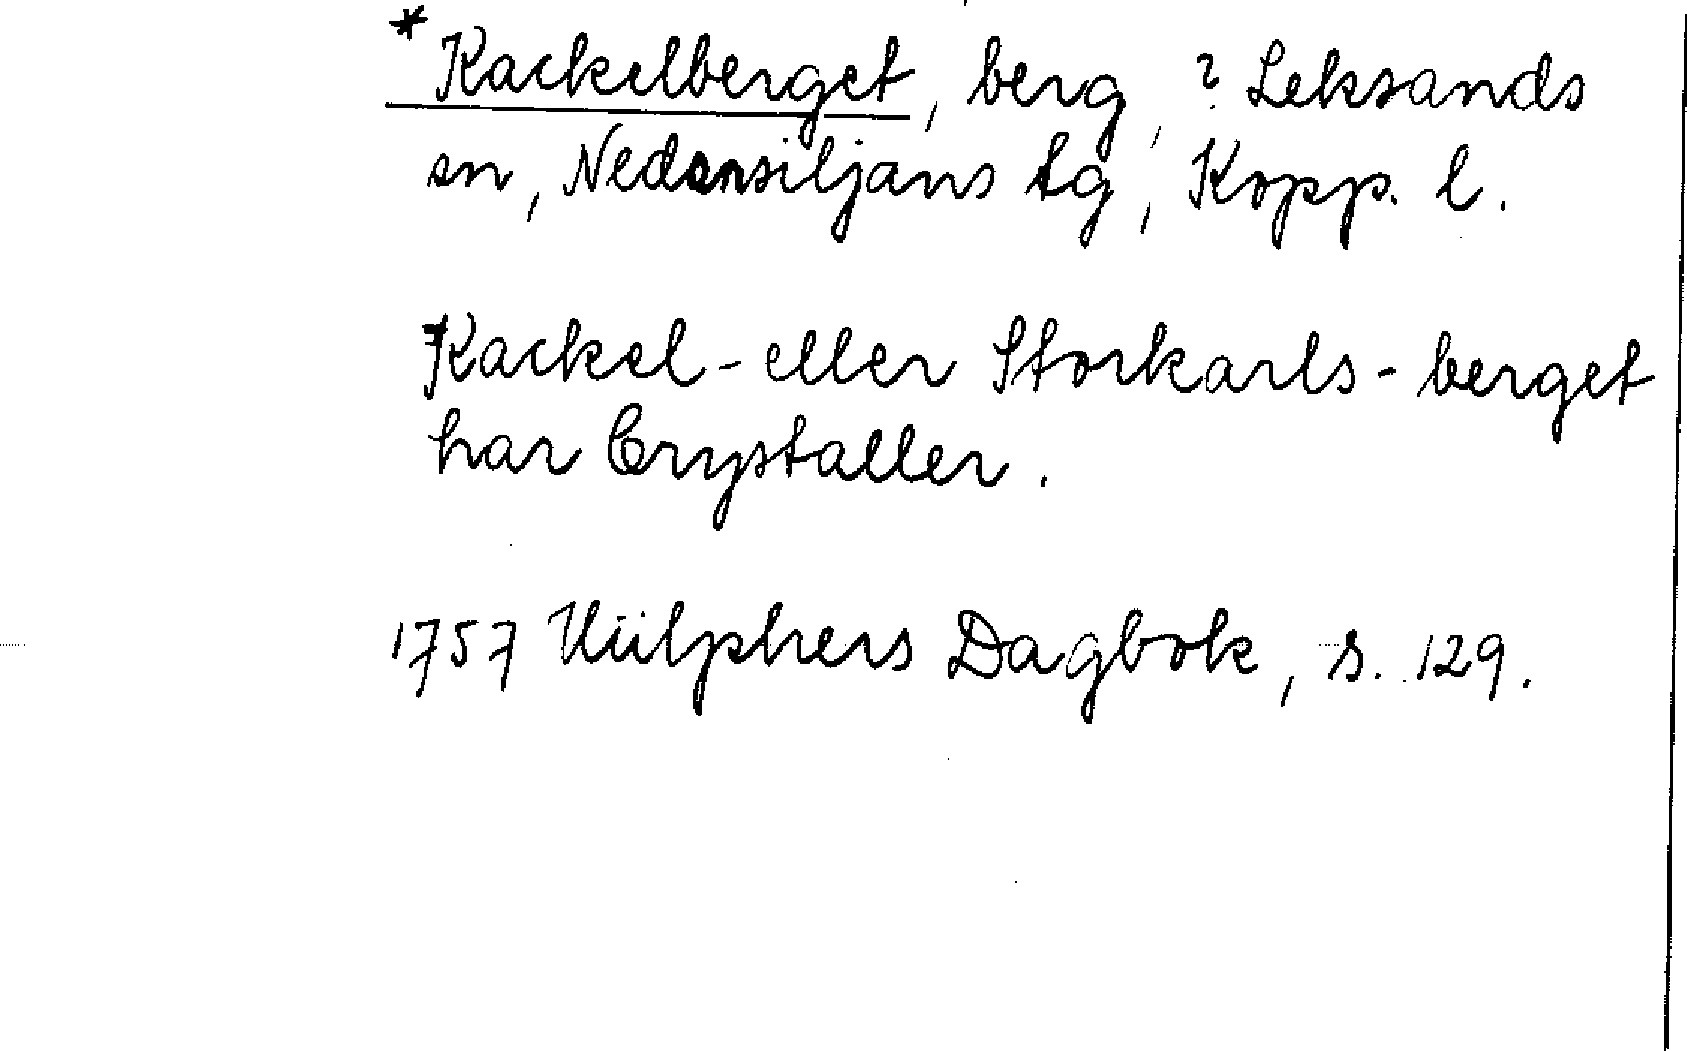 *Kackelberget, berg, ? Leksands
sn, Nedansiljans tg, Kopp. l.
Kackel- eller Storkarls-berget
har Crystaller.
1757 Hülphers Dagbok, s. 129.